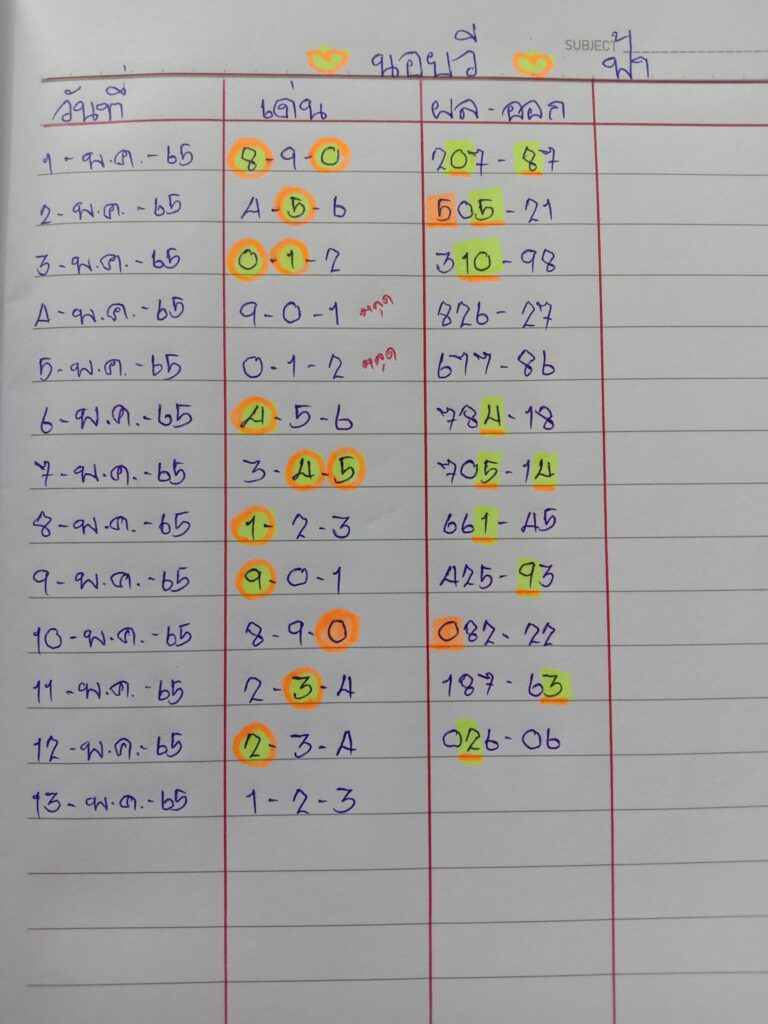 SUBJECT
ฮานอยวี ฟ้า
วันที่ เด่น ผล-ออก
1-พ.ค.-65 8-9-0 207-87
2-พ.ค.-65 4-5-6 505-21
3-พ.ค.-65 0-1-2 310-98
4-พ.ค.-65 9-0-1 หลุด 826-27
5-พ.ค.-65 0-1-2 หลุด 677-86
6-พ.ค.-65 4-5-6 784-18
7-พ.ค.-65 3-4-5 705-14
8-พ.ค.-65 1-2-3 661-45
9-พ.ค.-65 9-0-1 425-93
10-พ.ค.-65 8-9-0 082-22
11-พ.ค.-65 2-3-4 187-63
12-พ.ค.-65 2-3-4 026-06
13-พ.ค.-65 1-2-3